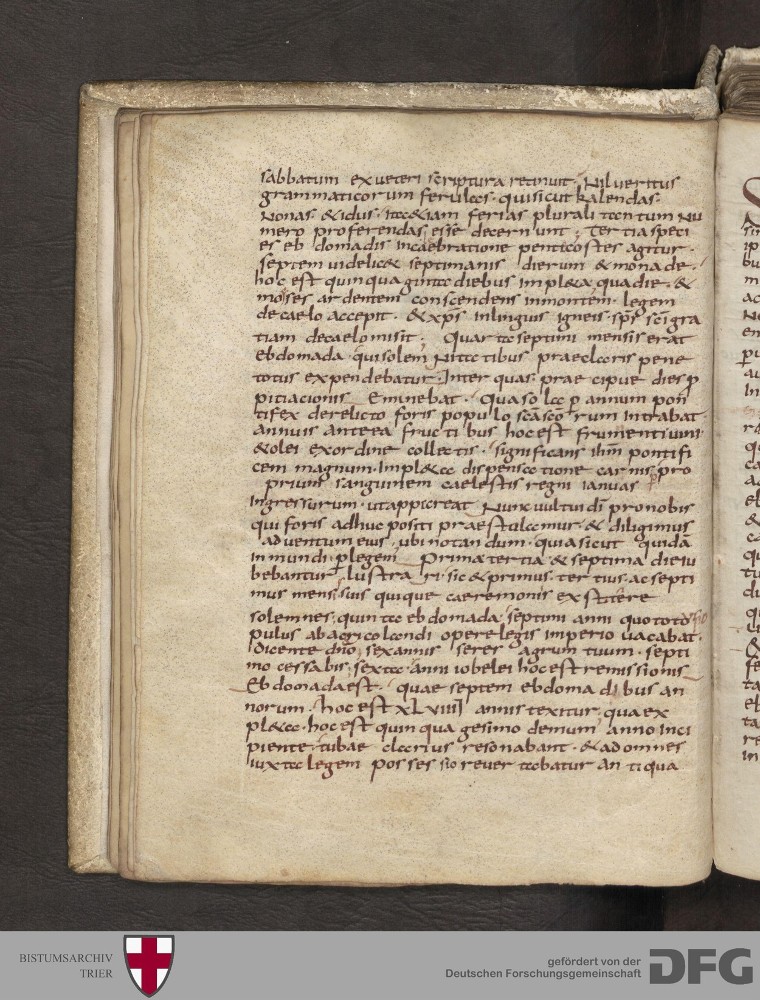 sabbatum exueteri scriptura retinuit. Nil ueritus
grammaticorum ferulas. quisicut kalendas.
Nonas. &idus. ita&iam ferias plurali tantum Nu
mero proferendas esse decernunt; Tertia speci
es eb domadis incaebratione penticostes agitur.
septem uidelic& septimanis dierum & monade.
hoc est quinquaginta diebus impl&a, qua die. &
moses ardentem conscendens inmontem legem
decaelo accepit. &xp̄s inlinguis igneis sp̄s sc̄i gra
tiam decaelo misit; Quarta septimi mensis erat
ebdomada quisolem Nitatibus praeclaris pene
totus expendebatur. Inter quas praecipue dies p
pitiacionis Eminebat. Qua sola p annum pon
tifex derelicto foris populo sc̄asc̄orum Intrabat.
annuis anterea fructibus hocest frumenti uini
&olei exordine collectis. significans ih̄m pontifi
cem magnum. Impl&a dispensatione carnis, pro
prium sanguinem caelestis regni ianuas
Ingressurum. utappareat Nunc uultui dī pronobis
qui foris adhuc positi praestolamur. & diligimus
aduentum eius, ubi notandum. quiasicut quidā
inmundi plegem Prima tertia & septima dieiu
bebantur lustrari. sic & primus. tertius. ac septi
mus mensisuis quique caeremoniis exstitere
solemnes. quinta ebdomada septimi anni quo toto
pulus abagricolandi opere legis imperio uacabat.
dicente dn̄o, sexannis seres agrum tuum. septi
mo cessabis, sexta. anni iobelei hocest remissionis
Ebdomada est. quae septem ebdomadibus an
norum. hoc est xLviiii annis texitur, qua ex
pl&a. hoc est quinquagesimo demum anno Inci
piente. tubae clarius resonabant. &adomnes
iuxta legem posses sio reuertabatur antiqua
BISTUMSARCHIV
TRIER
gefördert von der
Deutschen Forschungsgemeinschaft
DFG